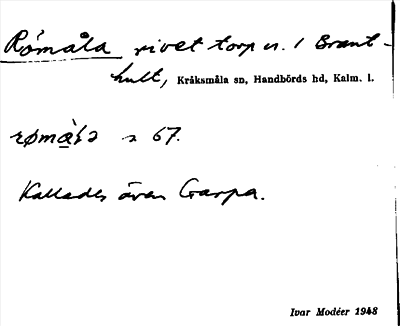 Römåla rivet torp u. / Brant-
hult, Kråksmåla sn, Handbörds hd, Kalm. l.
s 67.
Kallades även Garpa.
Ivar Modéer 1948